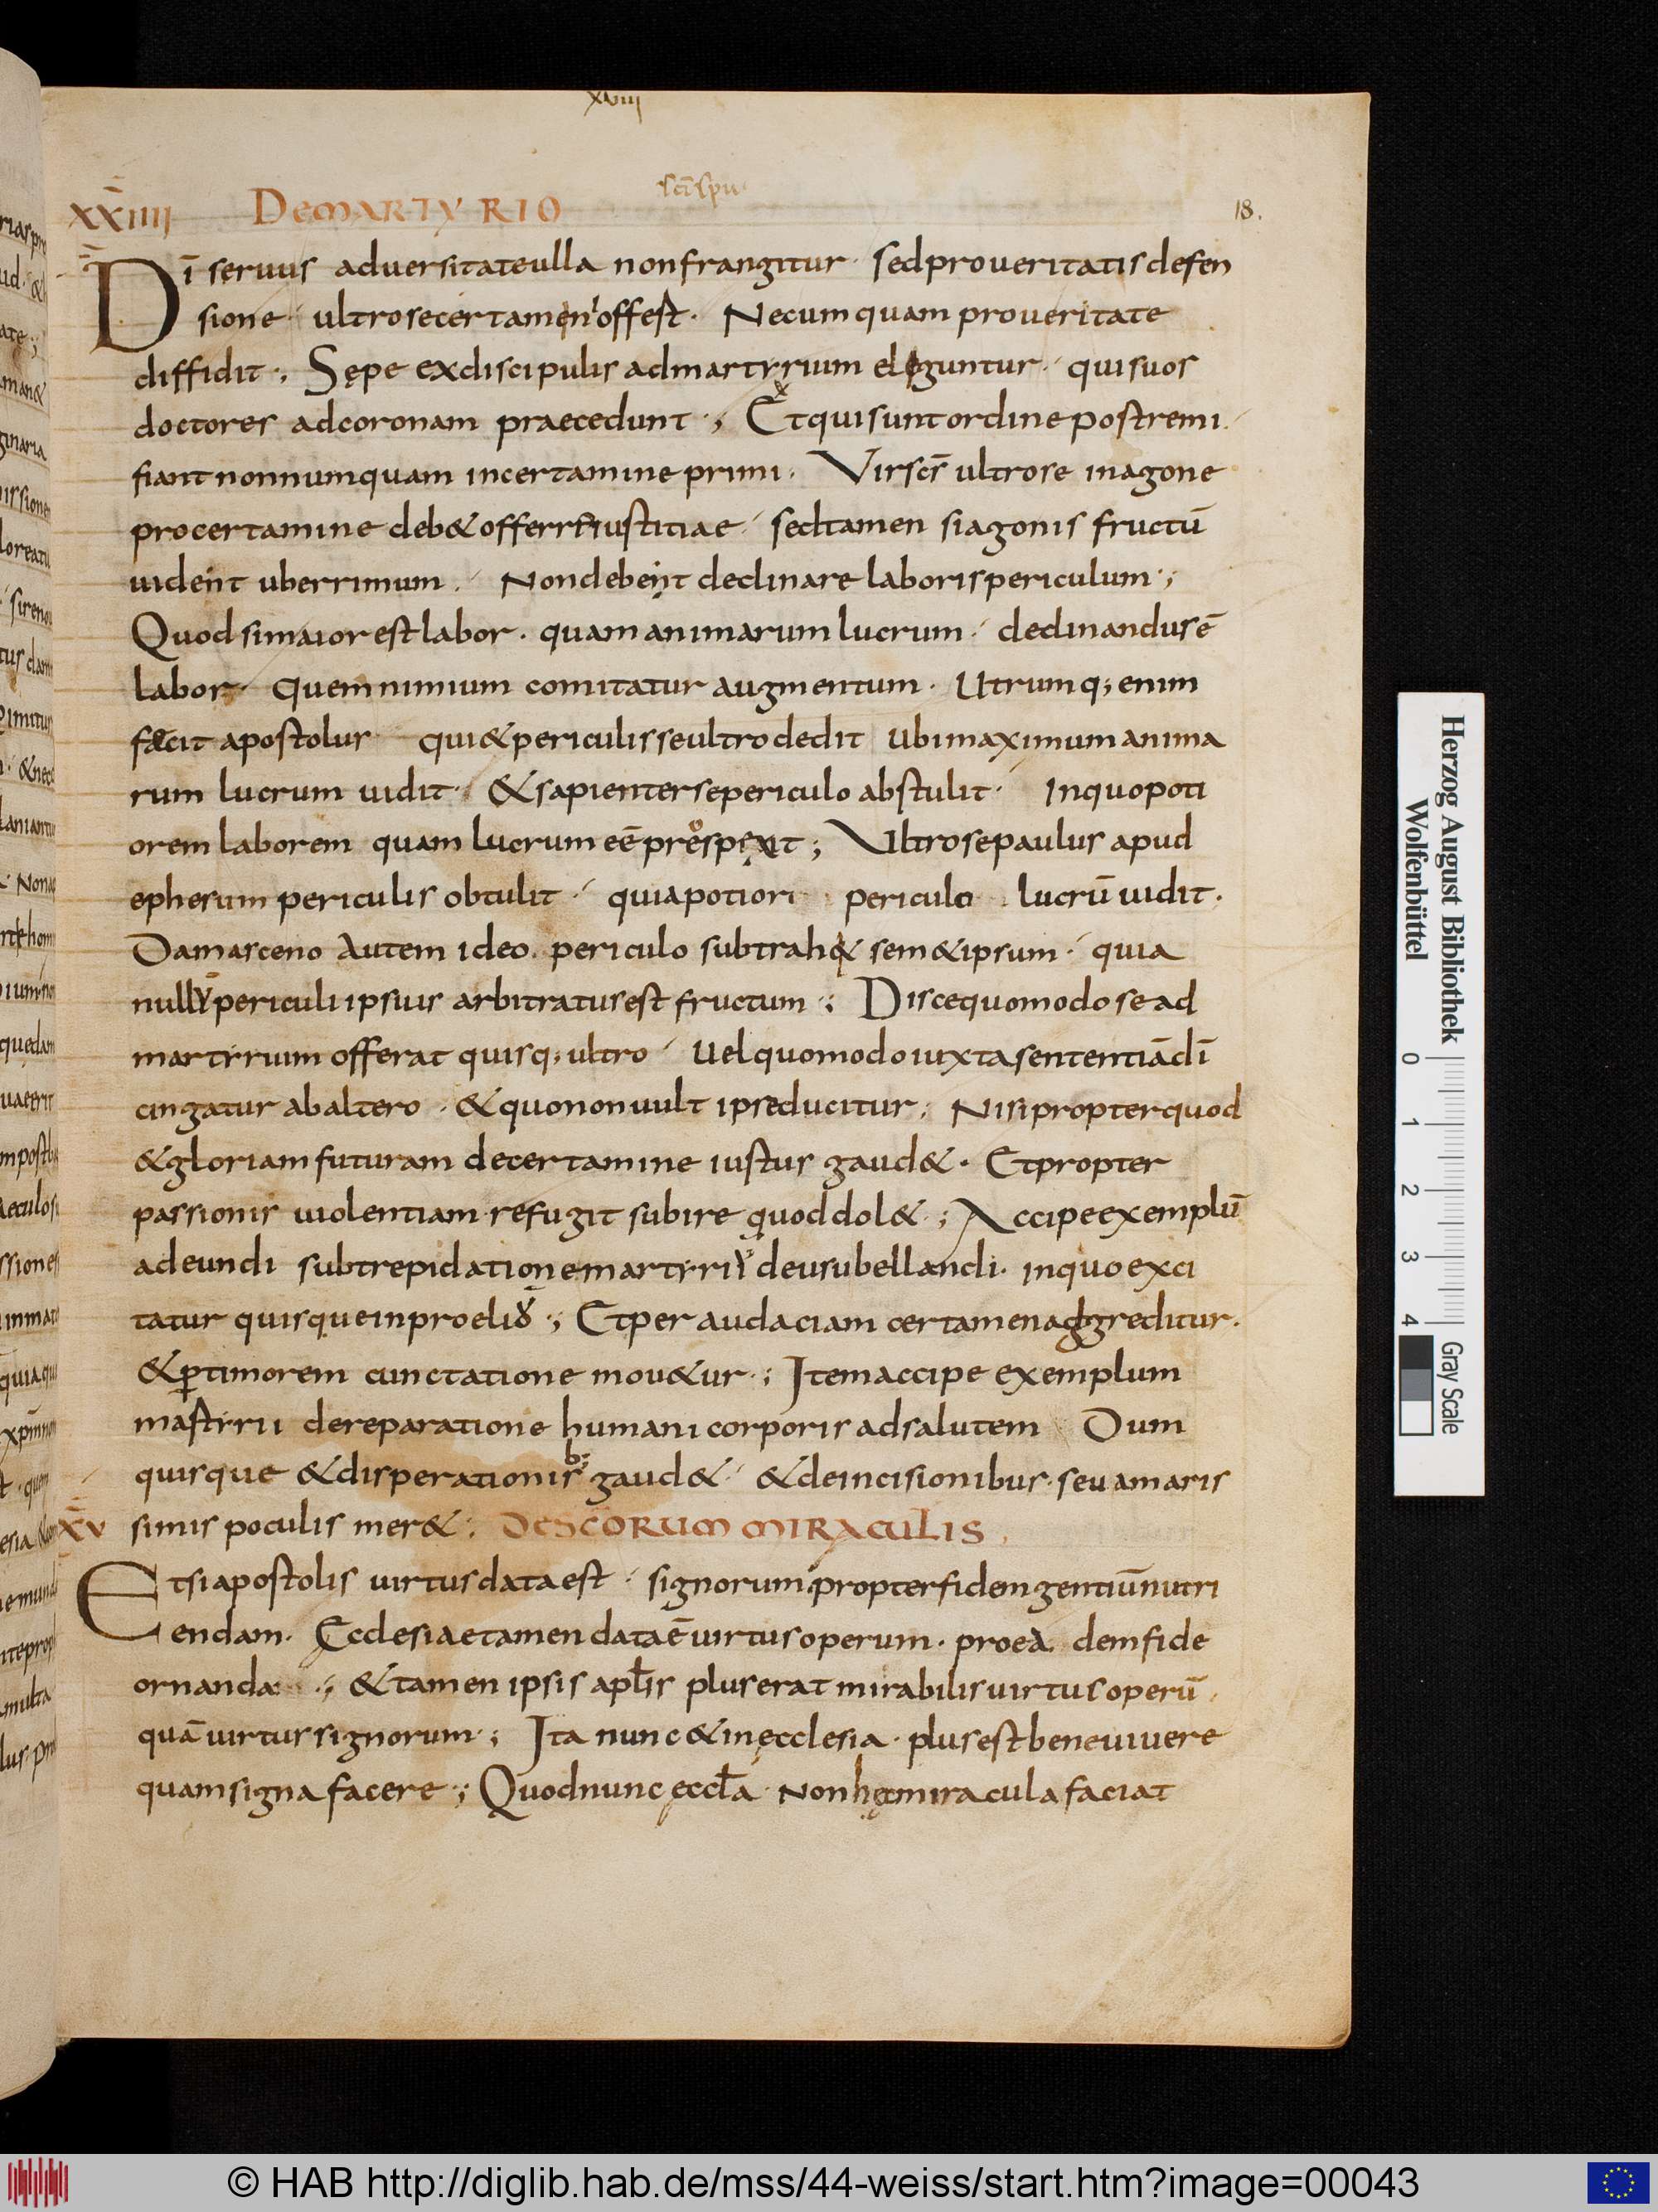 xviiii
sc̄i sp̄u
XXIIII DE MARTYRIO
18.
Dī seruus aduersitate ulla non frangitur · sed pro ueritatis defen
sione · ultro se certamen offest · Nec umquam pro ueritate
diffidit ·; Sepe ex discipulis ad martyrium eleguntur · qui suos
doctores ad coronam praecedunt ·; Et qui sunt ordine postremi ·
fiant nonnumquam in certamine primi · Vir sc̄s ultro se in agone
pro certamine deb& offerre iustitiae · sed tamen si agonis fructū
uident uberrimum · Non debent declinare laboris periculum ·;
Quod si maior est labor · quam animarum lucrum · declinandus ē
labor · quem nimium comitatur augmentum · Utrumq; enim
facit apostolus qui & periculis se ultro dedit ubi maximum anima
rum lucrum uidit · & sapienter se periculo abstulit · In quo poti
orem laborem quam lucrum eē prospexit ; Ultro se paulus apud
ephesum periculis obtulit · quia potiori periculo lucrū uidit ·
Damasceno autem ideo · periculo subtrah& sem&ipsum · quia
nullū periculi ipsius arbitratus est fructum ·; Disce quomodo se ad
martyrium offerat quisq; ultro · Uel quomodo iuxta sententiā dī
cingatur ab altero · & quo non uult ipse ducitur ; Nisi propter quod
& gloriam futuram de certamine iustus gaud& · Et propter
passionis uiolentiam refugit subire quod dol& ·; Accipe exemplū
adeundi sub trepidatione martyrii de usu bellandi · in quo exci
tatur quisque in proelio ·; Et per audaciam certamen adgreditur ·
& p̄ timorem cunctatione mou&ur ·; Item accipe exemplum
mastyrii de reparatione humani corporis ad salutem Dum
quisque & disperationis gaud& · & de incisionibus · seu amaris
XXV simis poculis mer& ; DE SCORUM MIRACULIS
Etsi apostolis uirtus data est · signorum propter fidem gentiū nutri
endam · Ecclesiae tamen data ē uirtus operum · pro eadem fide
ornanda ·; & tamen ipsis apl̄is plus erat mirabilis uirtus operū ·
quā uirtus signorum ·; Ita nunc & in ecclesia · plus est bene uiuere
quam signa facere ·; Quod nunc eccl̄a · Non ea miracula faciat
Herzog August Bibliothek
Wolfenbüttel
0 1 2 3 4
Gray Scale
© HAB http://diglib.hab.de/mss/44-weiss/start.htm?image=00043